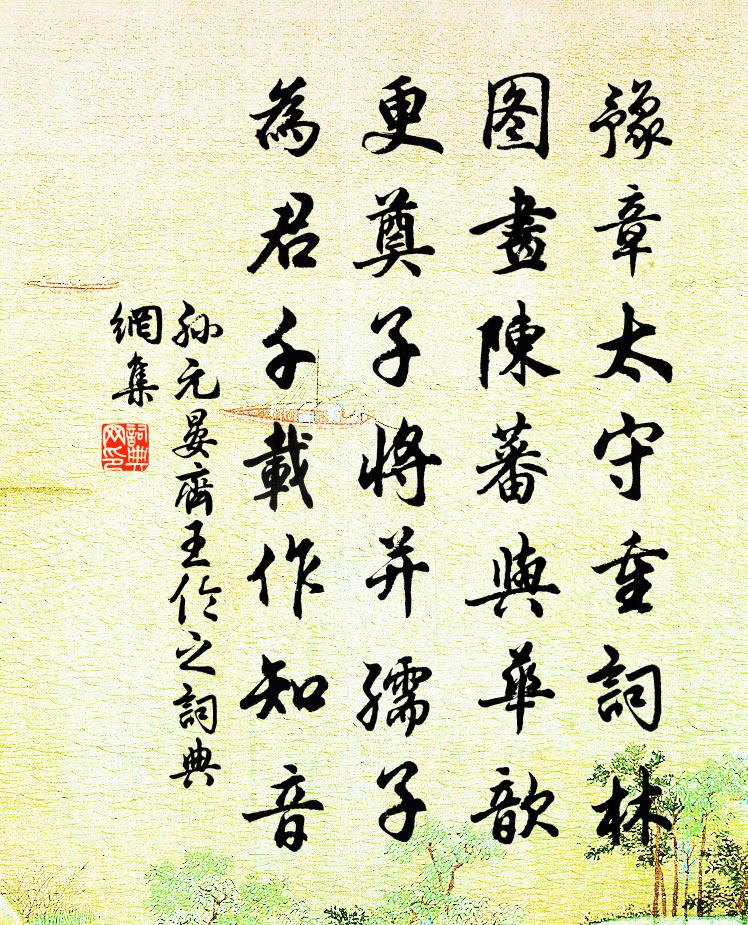 豫章太守重詞林
图畫陳蕃與華歆
更奠子將并孺子
為君千載作知音
孫元晏齊王伦之詞典
網集
詞典
网印